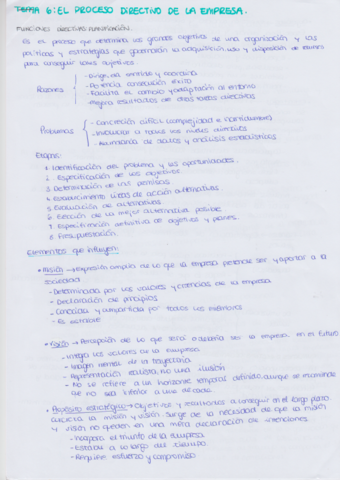 TEMA 6: EL PROCESO DIRECTIVO DE LA EMPRESA.
FUNCIONES DIRECTIVAS: PLANIFICACIÓN.
Es el proceso que determina los grandes objetivos de una organización y las
políticas y estrategias que gobernarán la adquisición, uso y disposición de
para conseguir tales objetivos
Razones
- Dirige, da sentido y coordina
- Potencia consecución éxito
- Facilita el cambio y adaptación al entorno
- Mejora resultados de otras tareas directivas
Problemas
- Concreción difícil (complejidad e incertidumbre)
- Involucra a todos los niveles directivos
- de datos y análisis estadísticos
Etapas:
1. Identificación del problema y las oportunidades.
2. Especificación de los objetivos
3. Determinación de las premisas
4. Establecimiento líneas de acción alternativas.
5. Evaluación de alternativas
6. Elección de la mejor alternativa posible
7. Especificación definitiva de objetivos y planes.
8. Presupuestación.
Elementos que influyen:
• Misión → Expresión amplia de lo que la empresa pretende ser y aportar a la
sociedad
- Determinada por los valores y creencias de la empresa
- Declaración de principios
- Conocida y compartida por todos los miembros
- Es estable
• Visión → Percepción de lo que será o debería ser la empresa en el futuro
- Integra los valores de la empresa
- Imagen mental de la trayectoria
- Representación realista, no una ilusión
- No se refiere a un horizonte temporal definido, aunque se recomienda
que no sea inferior a una década.
• Propósito estratégico → Objetivos y resultados a conseguir en el largo plazo.
la misión y visión. Surge de la necesidad de que la misión
y visión no queden en una mera declaración de intenciones.
- el triunfo de la empresa
- Estable a lo largo del tiempo.
- Requiere esfuerzo y compromiso